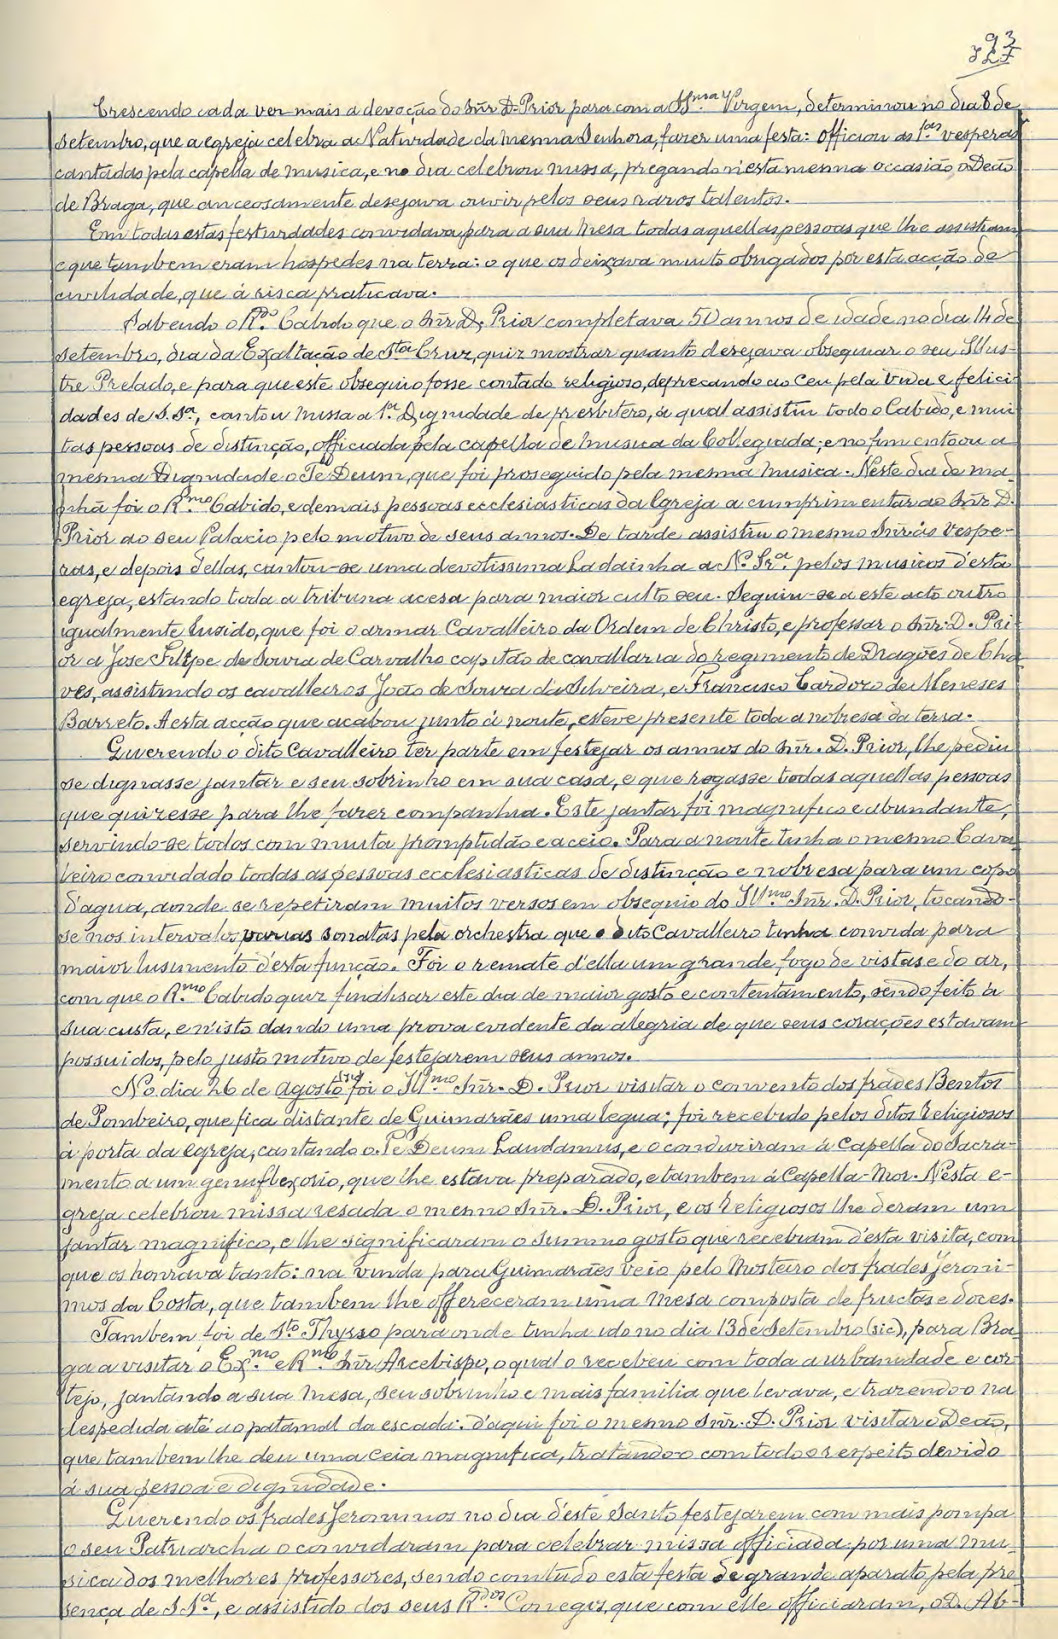 93
Crescendo cada vez mais a devoção do Snr. D. Prior para com a SSma Virgem, determinou no dia 8 de
setembro, que a egreja celebra a Natividade da mesma Senhora, fazer uma festa: Officiou as 1as vesperas
cantadas pela capella de musica, e no dia celebrou missa, pregando n'esta mesma occasião o Deão
de Braga, que anceosamente desejava ouvir pelos seus raros talentos.
Em todas estas festividades convidava para a sua mesa todas aquellas pessoas que lhe assistiam
e que tambem eram hospedes na terra: o que os deixava muito obrigados por esta acção de
civilidade, que á risca praticava.
Sabendo o Rdo. Cabido que o Snr. D. Prior completava 50 annos de idade no dia 14 de
setembro, dia da Exaltação de Sta Cruz, quiz mostrar quanto desejava obsequiar o seu Illus-
tre Prelado, e para que este obsequio fosse contado religioso, deprecando ao ceu pela vida e felici-
dades de S. Sa., cantou missa a 1a. Dignidade de presbitero, á qual assistiu todo o Cabido, e mui
tas pessoas de distinção, officiada pela capella de musica da Collegiada; e no fim entoou a
mesma Dignidade o Te Deum, que foi proseguido pela mesma musica. Neste dia de ma-
nhã foi o Rmo. Cabido, e demais pessoas ecclesiasticas da Egreja a cumprimentar ao Snr. D.
Prior ao seu Palacio pelo motivo de seus annos. De tarde assistiu o mesmo Snr. ás vespe-
ras, e depois d'ellas, cantou-se uma devotissima Ladainha a Na. Sra. pelos musicos d'esta
egreja, estando toda a tribuna acesa para maior culto seu. Seguiu-se a este acto outro
igualmente luzido, que foi o armar Cavalleiro da Ordem de Christo, e professar o Snr. D. Pri-
or a Jose Filipe de Souza de Carvalho capitão de cavallaria do regimento de Dragões de Cha-
ves, assistindo os cavalleiros João de Souza da Silveira, e Francisco Cardozo de Meneses
Barreto. A esta acção que acabou junto á noute, esteve presente toda a nobresa da terra.
Querendo o dito Cavalleiro ter parte em festejar os annos do Snr. D. Prior, lhe pediu
se dignasse jantar e seu sobrinho em sua casa, e que rogasse todas aquellas pessoas
que quizesse para lhe fazer companhia. Este jantar foi magnifico e abundante,
servindo-se todos com muita promptidão e aceio. Para a noute tinha o mesmo Cava-
leiro convidado todas as pessoas ecclesiasticas de distincção e nobresa para um copo
d'agua, aonde se repetiram muitos versos em obsequio do Illmo. Snr. D. Prior, tocando-
se nos intervalos varias sonatas pela orchestra que o dito Cavalleiro tinha convida para
maior lusimento d'esta função. Foi o remate d'ella um grande fogo de vistas e do ar,
com que o Rmo. Cabido quiz finalisar este dia de maior gosto e contentamento, sendo feito á
sua custa, e n'isto dando uma prova evidente da alegria de que seus corações estavam
possuidos, pelo justo motivo de festejarem seus annos.
No dia 26 de agosto (sic) foi o Illmo. Snr. D. Prior visitar o convento dos frades Bentos
de Pombeiro, que fica distante de Guimarães uma legua; foi recebido pelos ditos religiosos
á porta da egreja, cantando o Te Deum Laudamus, e o conduziram á Capella do Sacra-
mento a um genuflexorio, que lhe estava preparado, e tambem á Capella-Mor. N'esta e-
greja celebrou missa resada o mesmo Snr. D. Prior, e os religiosos lhe deram um
jantar magnifico, e lhe significaram o summo gosto que recebiam d'esta visita, com
que os honrava tanto: na vinda para Guimarães veio pelo Mosteiro dos frades Jeroni-
mos da Costa, que tambem lhe offereceram uma mesa composta de fructas e doces.
Tambem foi de Sto Thyrso para onde tinha ido no dia 13 de setembro (sic), para Bra-
ga a visitar o Exmo. e Rmo Snr Arcebispo, o qual o recebeu com toda a urbanidade e cor-
tejo, jantando a sua mesa, seu sobrinho e mais familia que levava, e trazendo-o na
despedida até ao patamal da escada: d'aqui foi o mesmo Snr. D. Prior visitar o Deão,
que tambem lhe deu uma ceia magnifica, tratando-o com todo o respeito devido
á sua pessoa e dignidade.
Querendo os frades Jeronimos no dia d'este Santo festejarem com mais pompa
o seu Patriarcha o convidaram para celebrar missa officiada por uma mu-
sica dos melhores professores, sendo comtudo esta festa de grande aparato pela pre-
sença de S. Sa., e assistido dos seus Rdos Conegos, que com elle officiaram, o D. Ab-